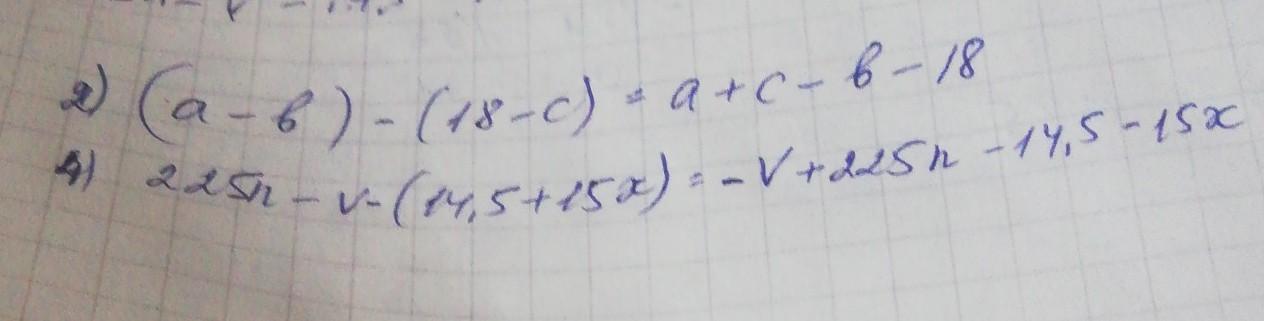 2) (a - b) - (18 - c) = a + c - b - 18
4) 225n - v - (14,5 + 15x) = - v + 225n - 14,5 - 15x